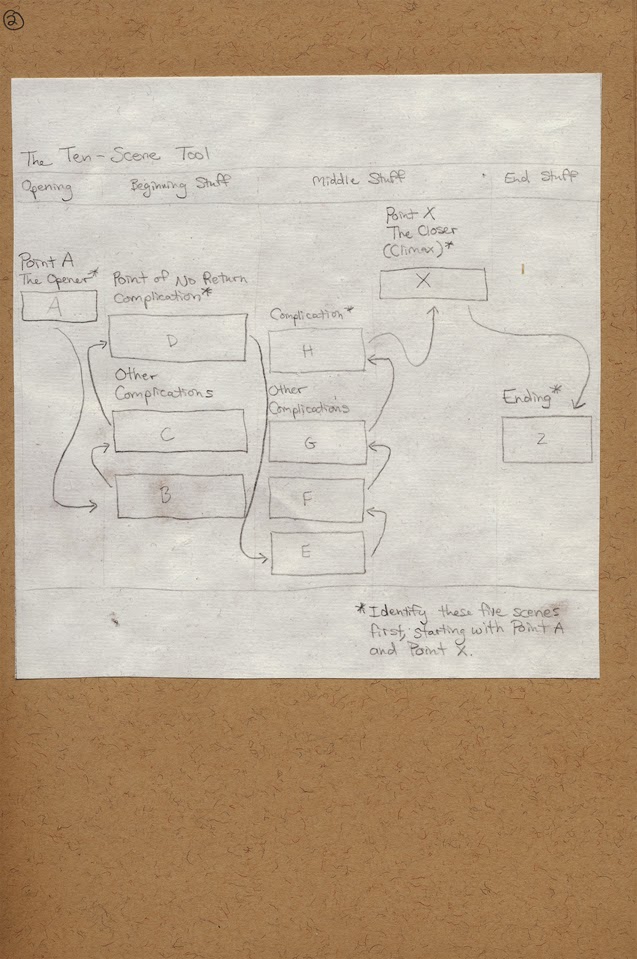 2
The Ten-Scene Tool
Opening
Beginning Stuff
Middle Stuff
End Stuff
Point A
The Opener*
A
Point of No Return
Complication*
D
Other
Complications
C
B
Complication*
H
Other
Complications
G
F
E
Point X
The Closer
(Climax)*
X
Ending*
Z
*Identify these five scenes
first, starting with Point A
and Point X.